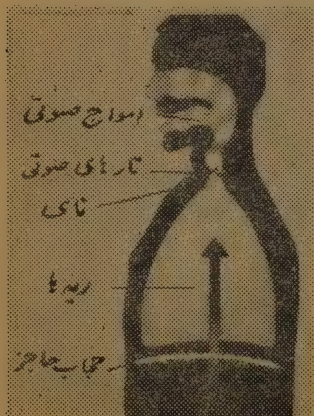 امواج صوتی
تارهای صوتی
نای
ریه ها
حجاب حاجز